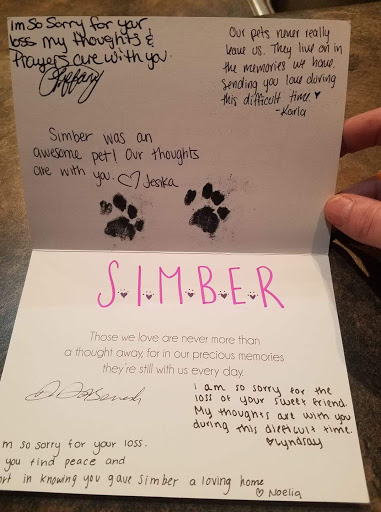 im so sorry for your
loss my thoughts &
Prayers are with you.
Tiffany
Our pets never really
leave us. They live on in
the memories we have.
Sending you love during
this difficult time ♥
-Karla
Simber was an
awesome pet! Our thoughts
are with you. ♡ Jesika
S.I.M.B.E.R
Those we love are never more than
a thought away, for in our precious memories
they're still with us every day.
i am so sorry for the
loss of your sweet friend.
My thoughts are with you
during this difficult time.
♥Lyndsay
m so sorry for your loss.
you find peace and
ort in knowing you gave Simber a loving home
♡ Noelia